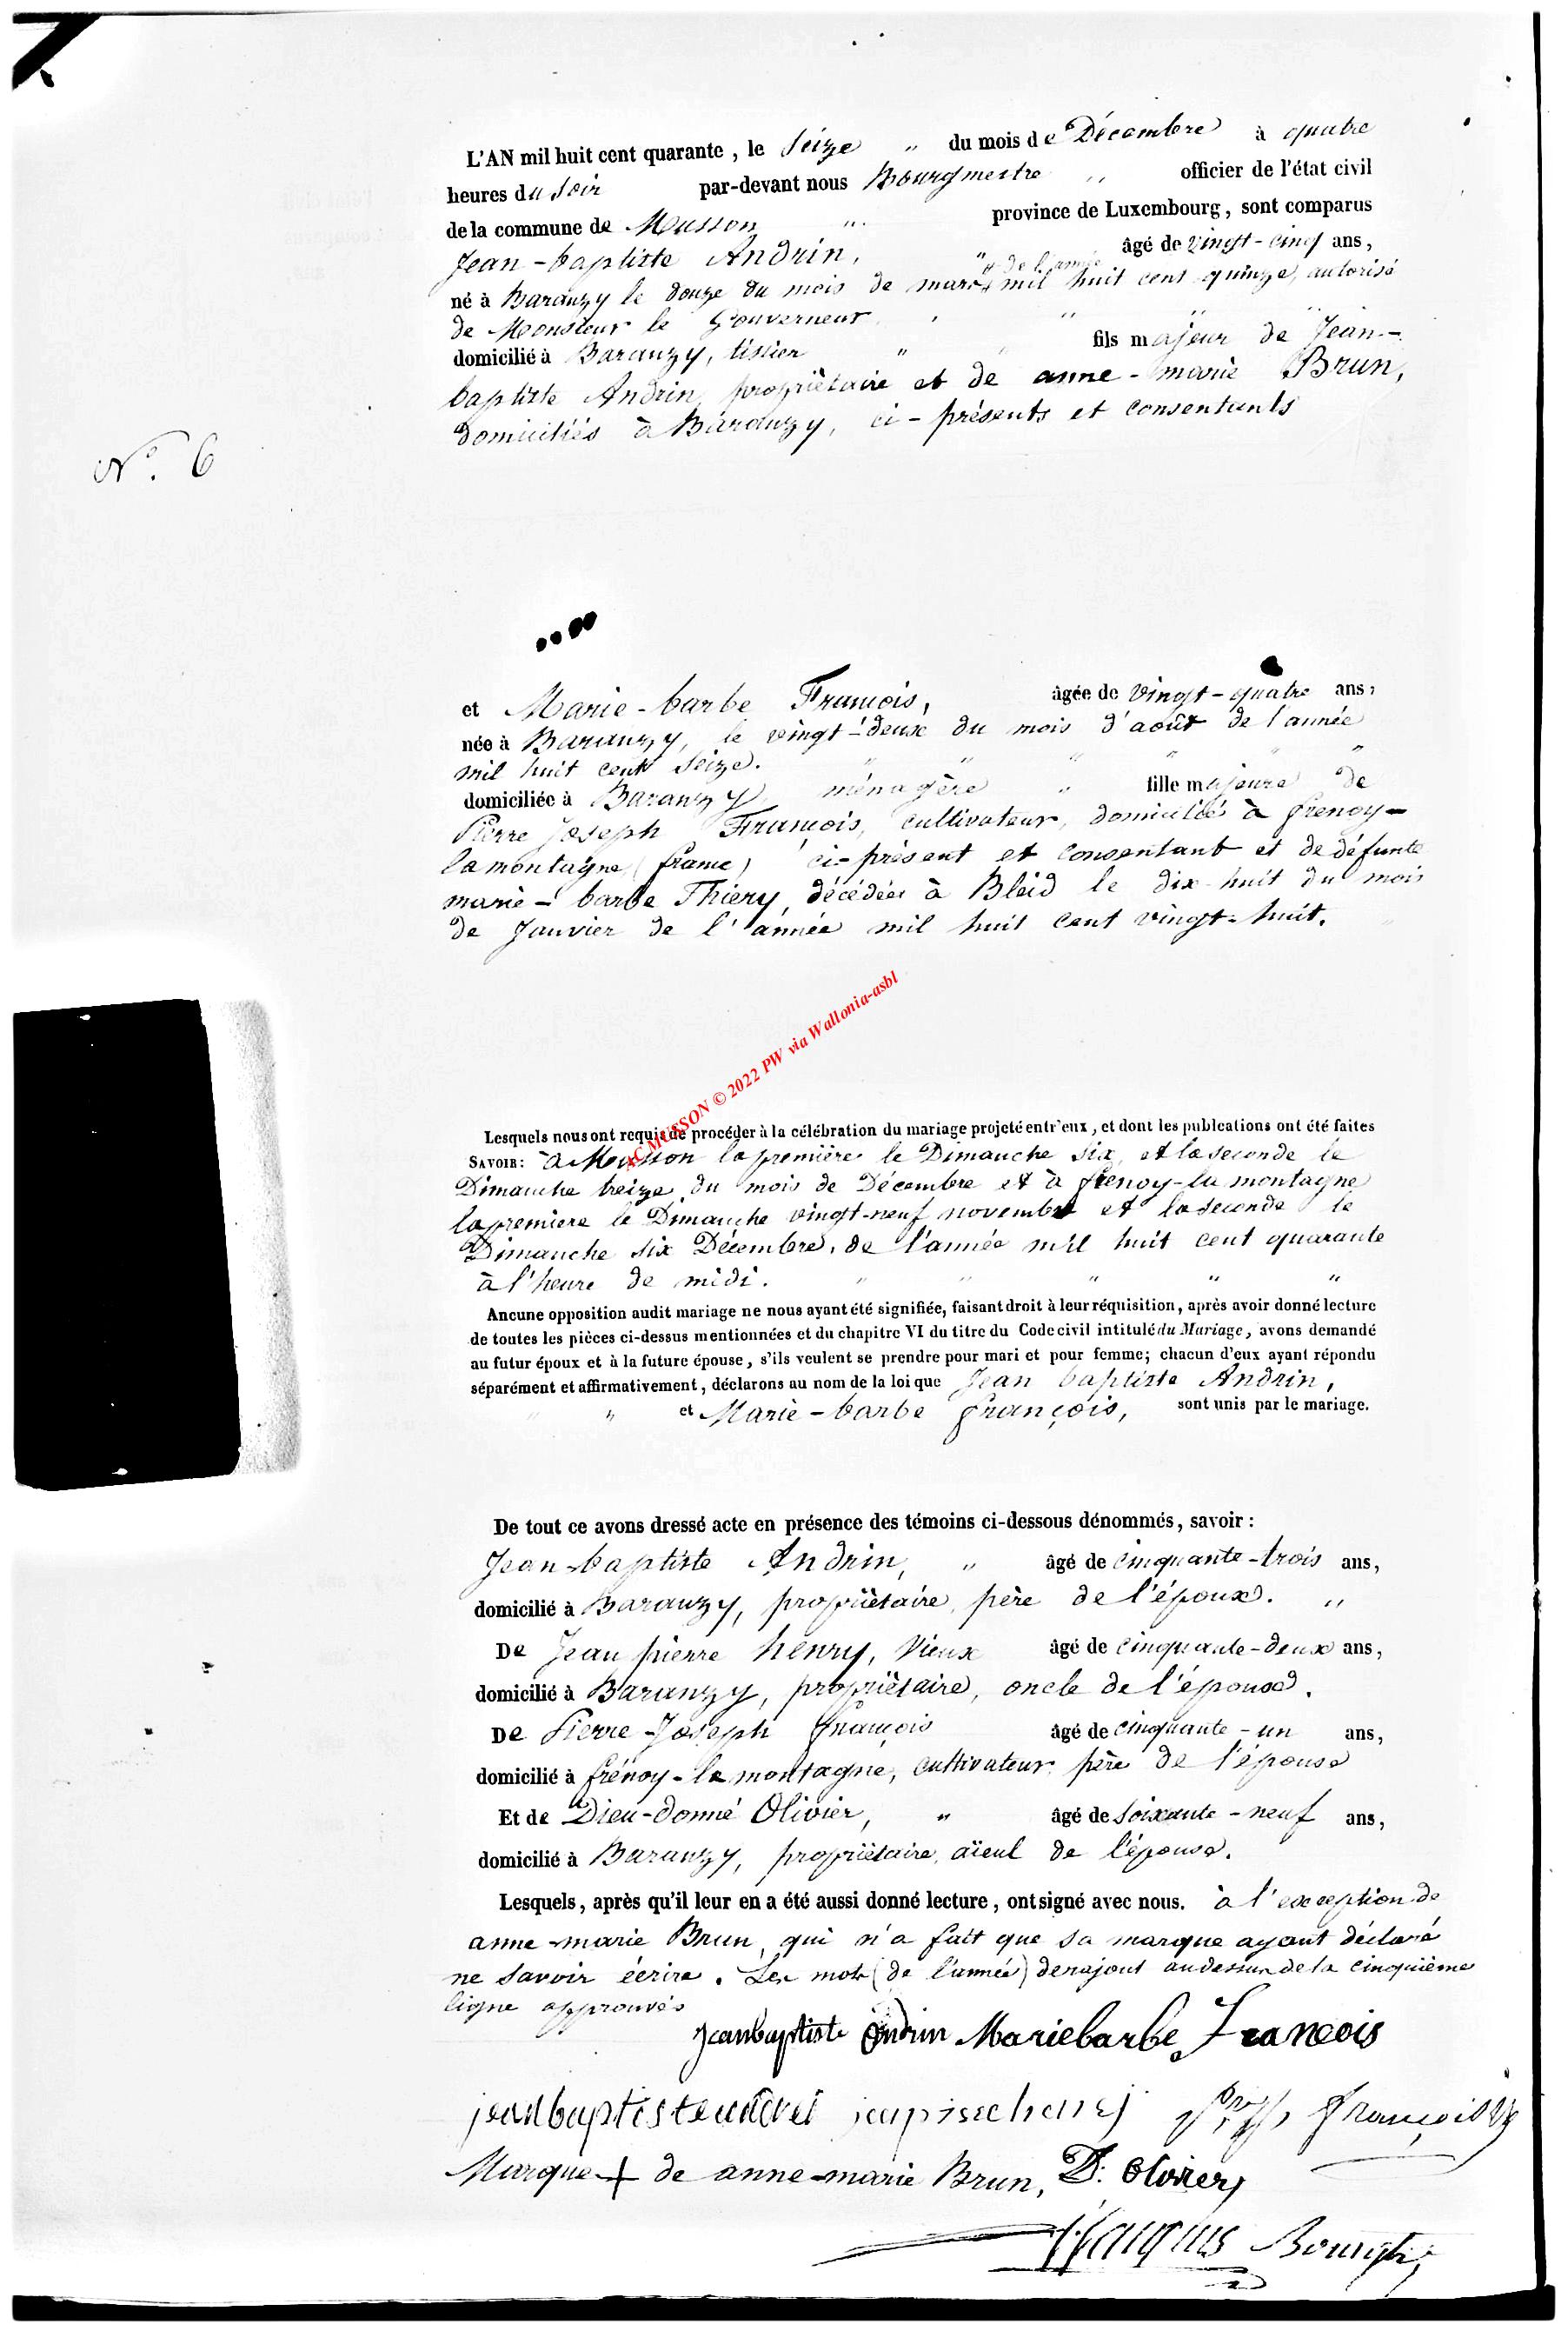 L'AN mil huit cent quarante, le Seize " du mois de Décembre à quatre
heures du Soir par-devant nous Bourgmestre " officier de l'état civil
de la commune de Musson " province de Luxembourg, sont comparus
Jean-baptiste Andrin, " âgé de vingt-cinq ans,
# de l'année
né à Baranzy le douze du mois de mars # mil huit cent quinze, autorisé
de Monsieur le Gouverneur " " "
domicilié à Baranzy, tissier " fils majeur de Jean-
baptiste Andrin, propriètaire et de anne-marie Brun,
domiciliés à Baranzy, ci-présents et consentants
N°. 6
et Marie-barbe François, âgée de vingt-quatre ans,
née à Baranzy, le vingt-deux du mois d'août de l'année
mil huit cent Seize. " " " " " "
domiciliée à Baranzy ménagère " fille majeure de
Pierre Joseph François, cultivateur, domicilié à frenoy-
la montagne (france) ci-présent et consentant et de défunte
marie-barbe Thiery, décédée à Bleid le dix-huit du mois
de Janvier de l'année mil huit cent vingt-huit.
AC MUSSON © 2022 PW via Wallonia-asbl
Lesquels nous ont requis de procéder à la célébration du mariage projeté entr'eux, et dont les publcations ont été faites
SAVOIR: à Musson la première le Dimanche six, et la seconde le
Dimanche treize du mois de Décembre et à frenoy-la montagne
la premiere le Dimanche vingt-neuf novembre et la seconde le
Dimanche six Décembre, de l'année mil huit cent quarante
à l'heure de midi. " " " " "
Ancune opposition audit mariage ne nous ayant été signifiée, faisant droit à leur réquisition, après avoir donné lecture
de toutes les pièces ci-dessus mentionnées et du chapitre VI du titre du Code civil intitulé du Mariage, avons demandé
au futur époux et à la future épouse, s'ils veulent se prendre pour mari et pour femme; chacun d'eux ayant répondu
séparément et affirmativement, déclarons au nom de la loi que Jean baptiste Andrin,
" " et Marie-barbe françois, sont unis par le mariage.
De tout ce avons dressé acte en présence des témoins ci-dessous dénommés, savoir:
Jean-baptiste Andrin, " âgé de cinquante-trois ans,
domicilié à Baranzy, propriètaire, père de l'époux. "
De Jean pierre henry, Vieux âgé de cinquante-deux ans,
domicilié à Baranzy, propriètaire, oncle de l'épouse.
De Pierre-Joseph françois âgé de cinquante-un ans,
domicilié à frénoy-la montagne, cultivateur père de l'épouse
Et de Dieu-donné Olivier, " âgé de soixante-neuf ans,
domicilié à Baranzy, propriètaire, aïeul de l'épouse.
Lesquels, après qu'il leur en a été aussi donné lecture, ont signé avec nous. à l'exception de
anne-marie Brun, qui n'a fait que sa marque ayant déclaré
ne savoir écrire. Les mots (de l'année) denajout au dessus de la cinquième
ligne approuvés
Jeanbaptiste Andrin Mariebarbe Francois
jeanbaptiste françois
Marque + de anne-marie Brun, D: Olivier
Bourgtre